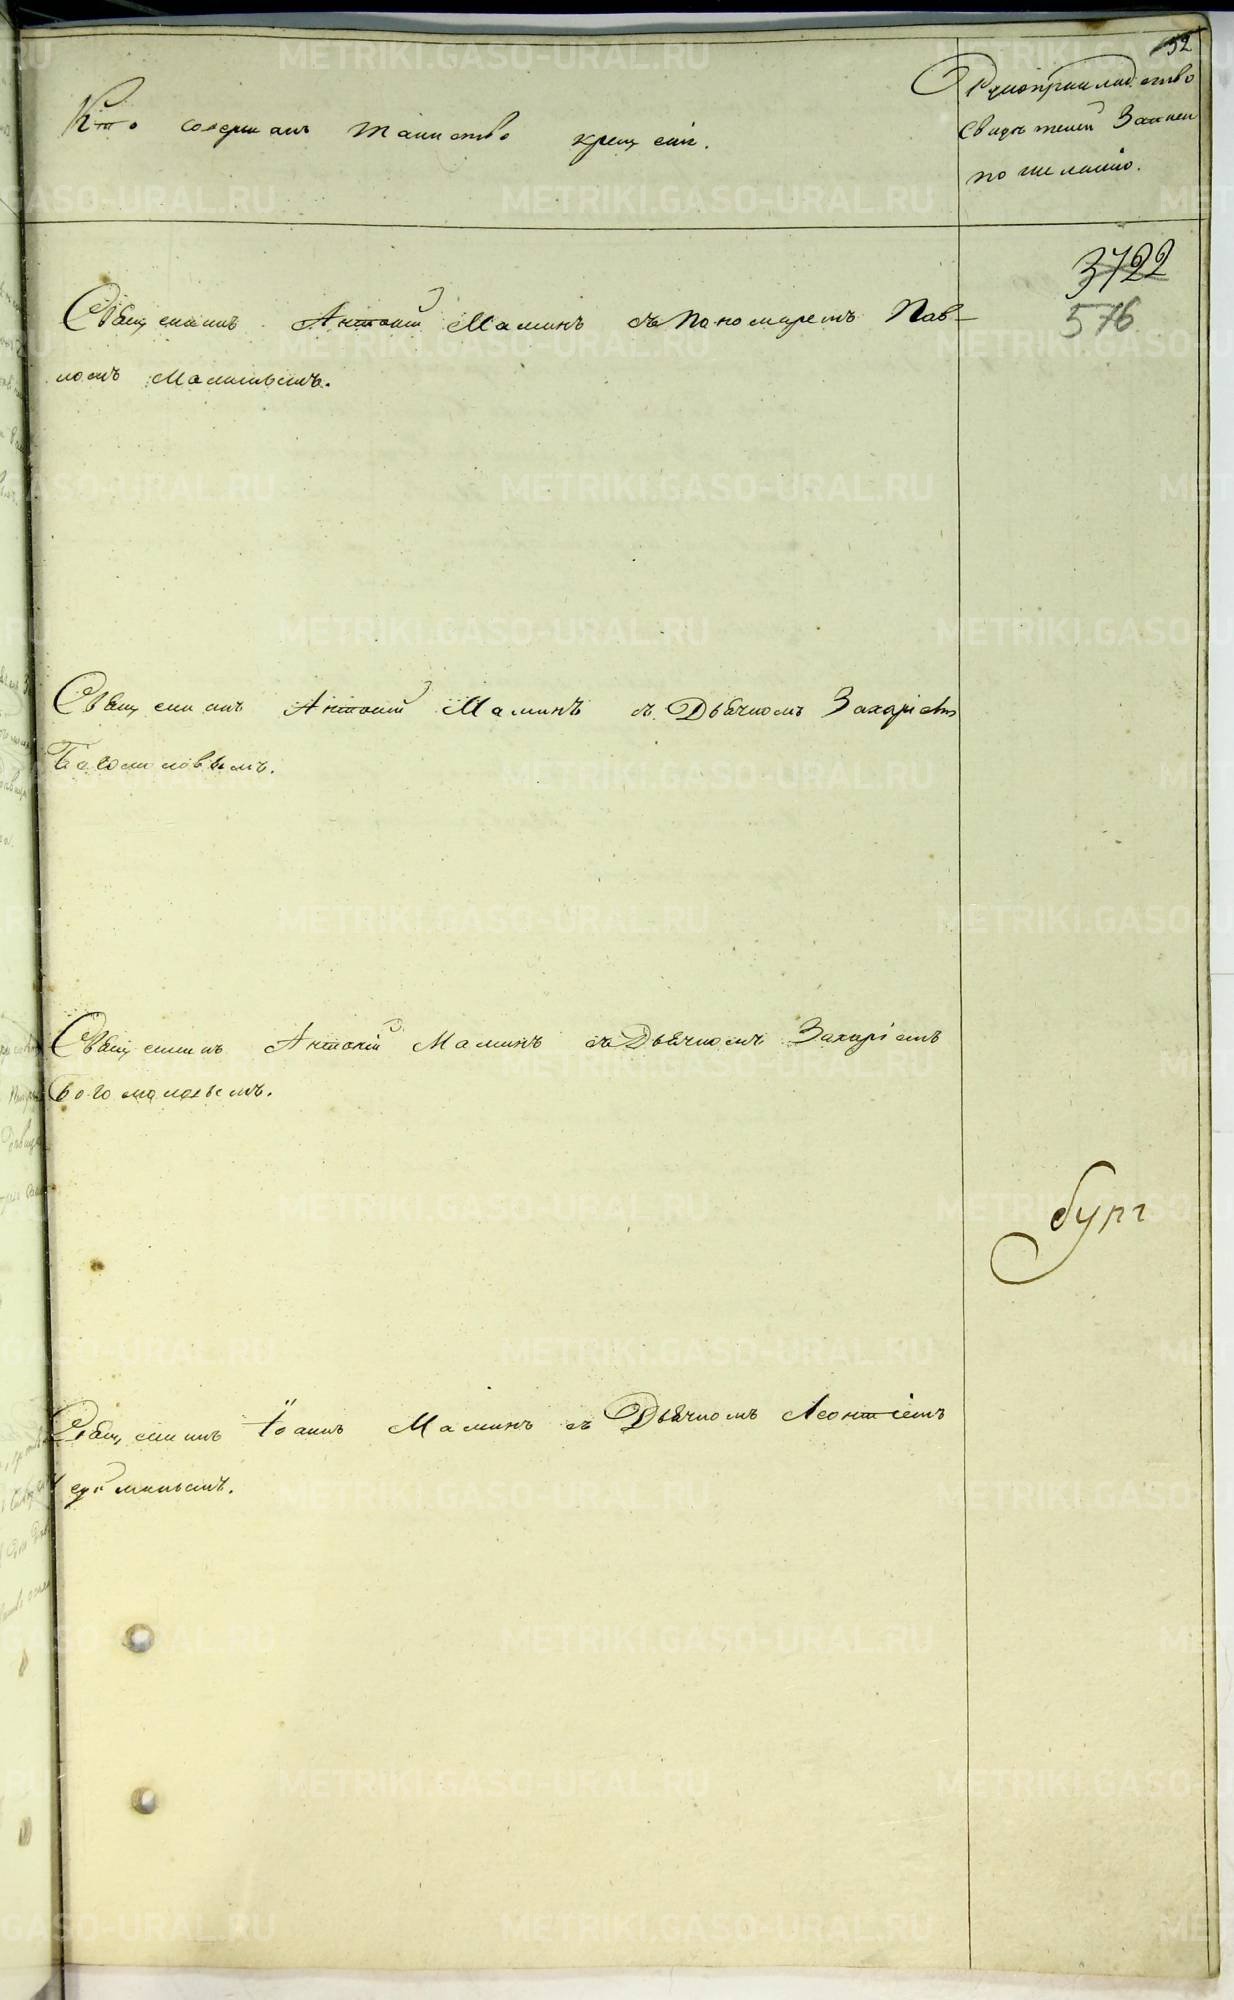 52
Кто совершалъ таинство крещенія.
Рукоприкладство
свидѣтелей записи
по желанію.
3722
576
Священникъ Антоній Маминъ съ Пономаремъ Пав-
ломъ Маминымъ.
Священникъ Антоній Маминъ съ Дьячкомъ Захаріемъ
Богомоловымъ.
Священникъ Антоній Маминъ съ Дьячкомъ Захаріемъ
Богомоловымъ.
бург
Священникъ Іоаннъ Маминъ съ Дьячкомъ Леонтіемъ
METRIKI.GASO-URAL.RU